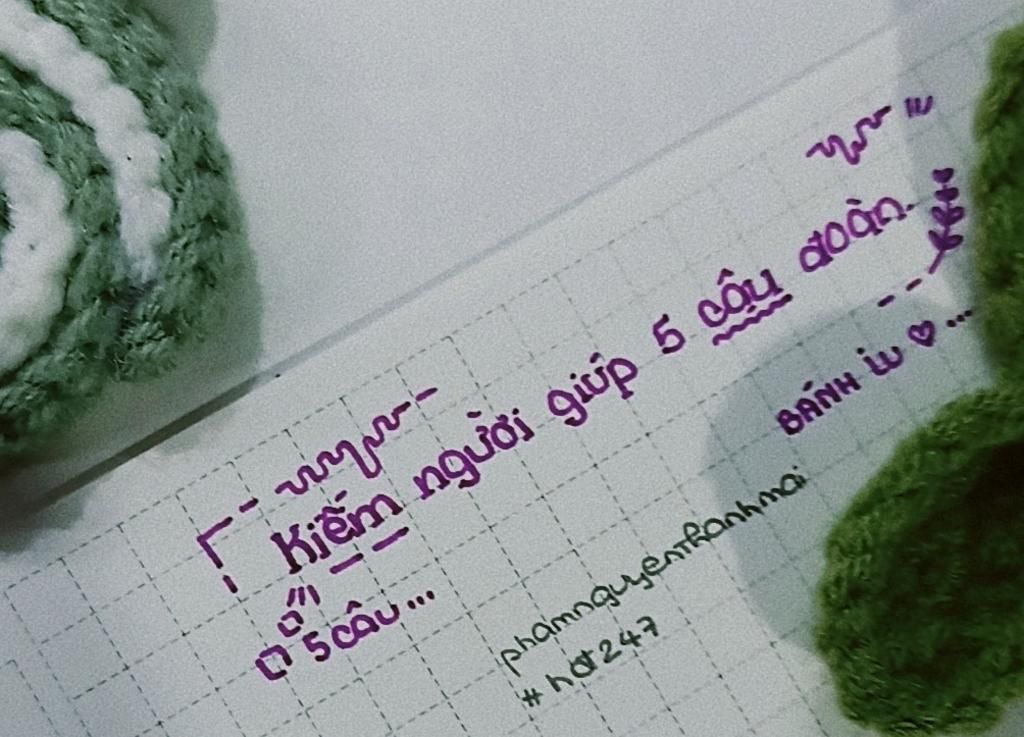 Kiếm người giúp 5 câu đoàn.
5 câu...
BÁNH iu ♡...
phamnguyenthanhmai
# hot247